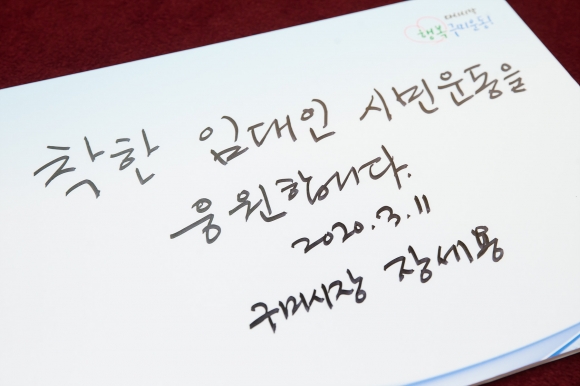 행복
착한 임대인 시민운동을
응원합니다.
2020.3.11
구미시장 장세용